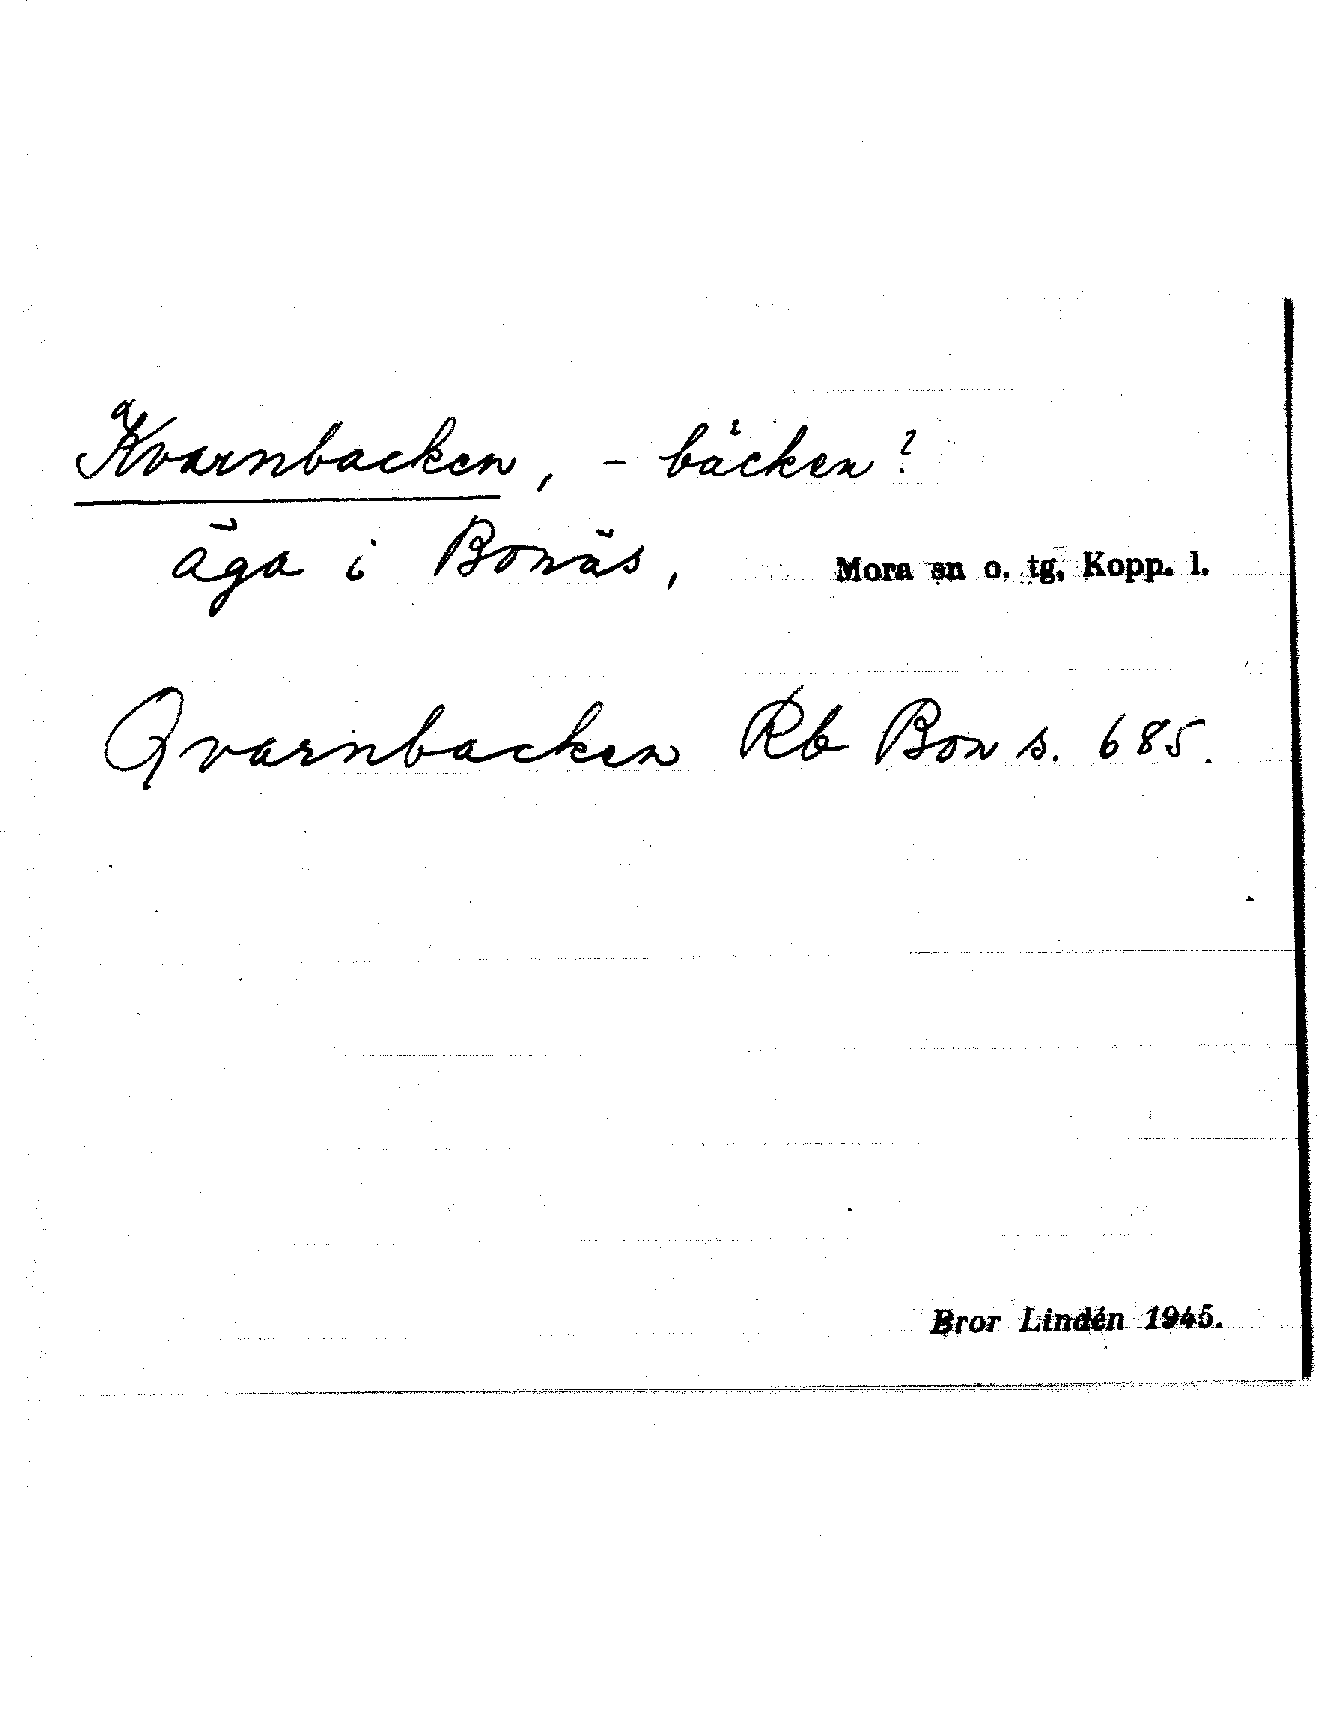 Kvarnbacken, - bäcken?
äga i Bonäs, Mora sn o. tg, Kopp. l.
Qvarnbacken Rb Bon s. 685.
Bror Lindén 1945.